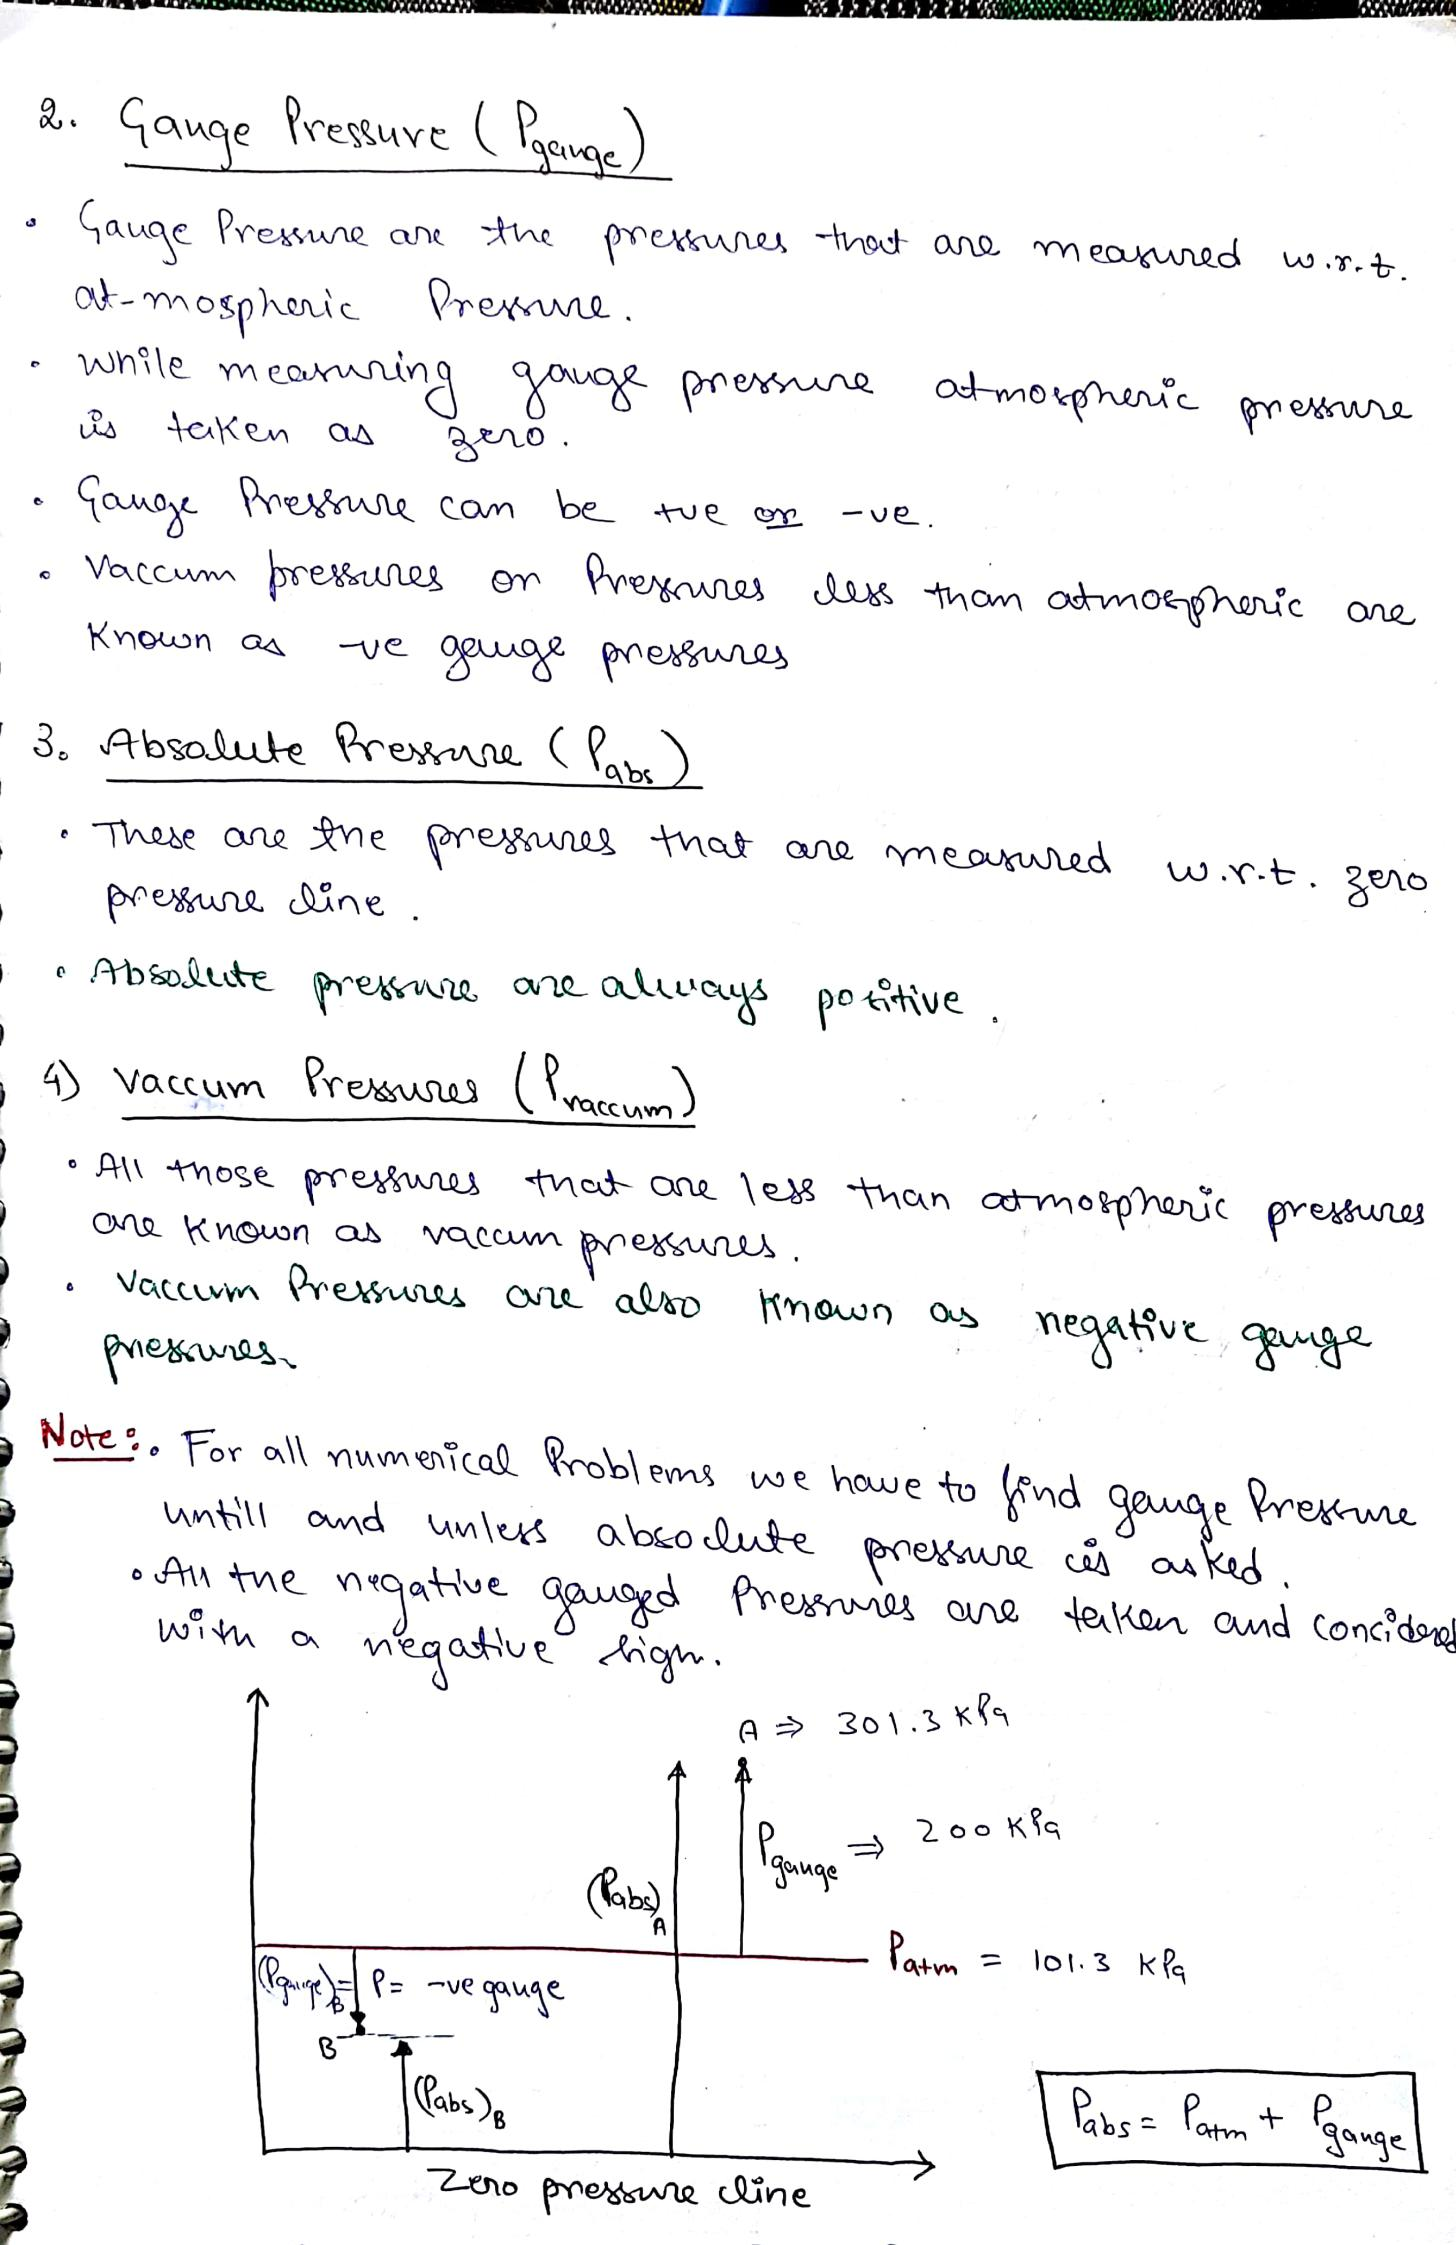 2. Gauge Pressure (Pgauge)
• Gauge Pressure are the pressures that are measured w.r.t.
at-mospheric Pressure.
• While measuring gauge pressure atmospheric pressure
is taken as zero.
• Gauge Pressure can be +ve or -ve.
• Vaccum pressures or Pressures less than atmospheric are
Known as -ve gauge pressures
3. Absolute Pressure (Pabs)
• These are the pressures that are measured w.r.t. zero
pressure line.
• Absolute pressure are always positive.
4) Vaccum Pressures (Pvaccum)
• All those pressures that are less than atmospheric pressures
are Known as vaccum pressures.
• Vaccum Pressures are also Known as negative gauge
pressures.
Note:• For all numerical Problems we have to find gauge Pressure
untill and unless absolute pressure is asked.
• All the negative gauged Pressures are taken and concidered
with a negative sign.
A ⇒ 301.3 KPa
Pgauge ⇒ 200 KPa
(Pabs)A
Patm = 101.3 KPa
(Pgauge)B = P = -ve gauge
B
(Pabs)B
Pabs = Patm + Pgauge
Zero pressure line